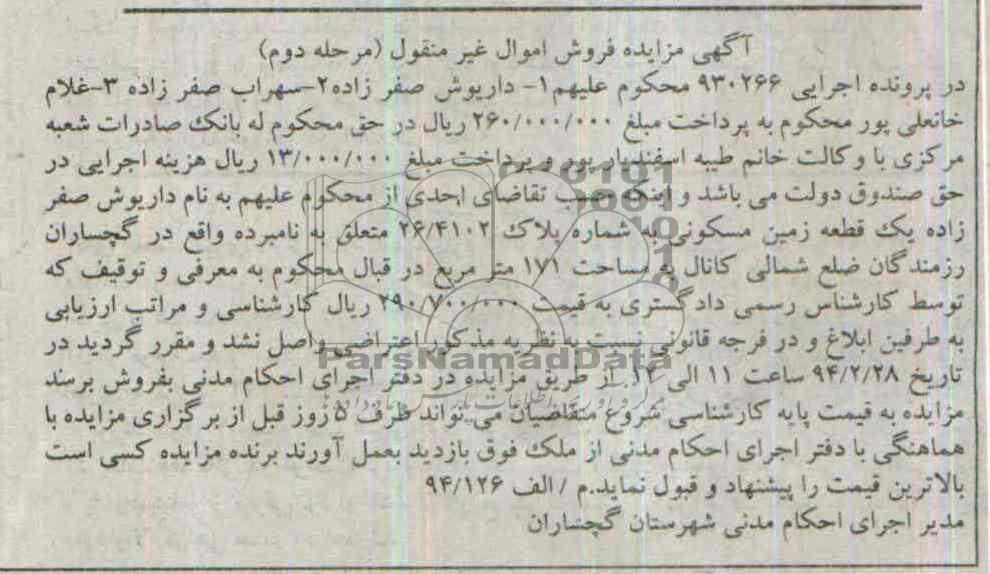 آگهی مزایده فروش اموال غیر منقول (مرحله دوم)
در پرونده اجرایی ۹۳۰۲۶۶ محکوم علیهم ۱- داریوش صفر زاده۲-سهراب صفر زاده ۳-غلام
خانعلی پور محکوم به پرداخت مبلغ ۲۶۰/۰۰۰/۰۰۰ ریال در حق محکوم له بانک صادرات شعبه
مرکزی با وکالت خانم طیبه اسفندیار پور و پرداخت مبلغ ۱۳/۰۰۰/۰۰۰ ریال هزینه اجرایی در
حق صندوق دولت می باشد و اینکه حسب تقاضای احدی از محکوم علیهم به نام داریوش صفر
زاده یک قطعه زمین مسکونی به شماره پلاک ۲۶/۴۱۰۲ متعلق به نامبرده واقع در گچساران
رزمندگان ضلع شمالی کانال به مساحت ۱۷۱ متر مربع در قبال محکوم به معرفی و توقیف که
توسط کارشناس رسمی دادگستری به قیمت ۲۹۰/۷۰۰/۰۰۰ ریال کارشناسی و مراتب ارزیابی
به طرفین ابلاغ و در فرجه قانونی نسبت به نظریه مذکور اعتراضی واصل نشد و مقرر گردید در
تاریخ ۹۴/۲/۲۸ ساعت ۱۱ الی ۱۲ از طریق مزایده در دفتر اجرای احکام مدنی بفروش برسند
مزایده به قیمت پایه کارشناسی شروع متقاضیان می تواند ظرف ۵ روز قبل از برگزاری مزایده با
هماهنگی با دفتر اجرای احکام مدنی از ملک فوق بازدید بعمل آورند برنده مزایده کسی است
بالاترین قیمت را پیشنهاد و قبول نماید.م / الف ۹۴/۱۲۶
مدیر اجرای احکام مدنی شهرستان گچساران
ParsNamadData